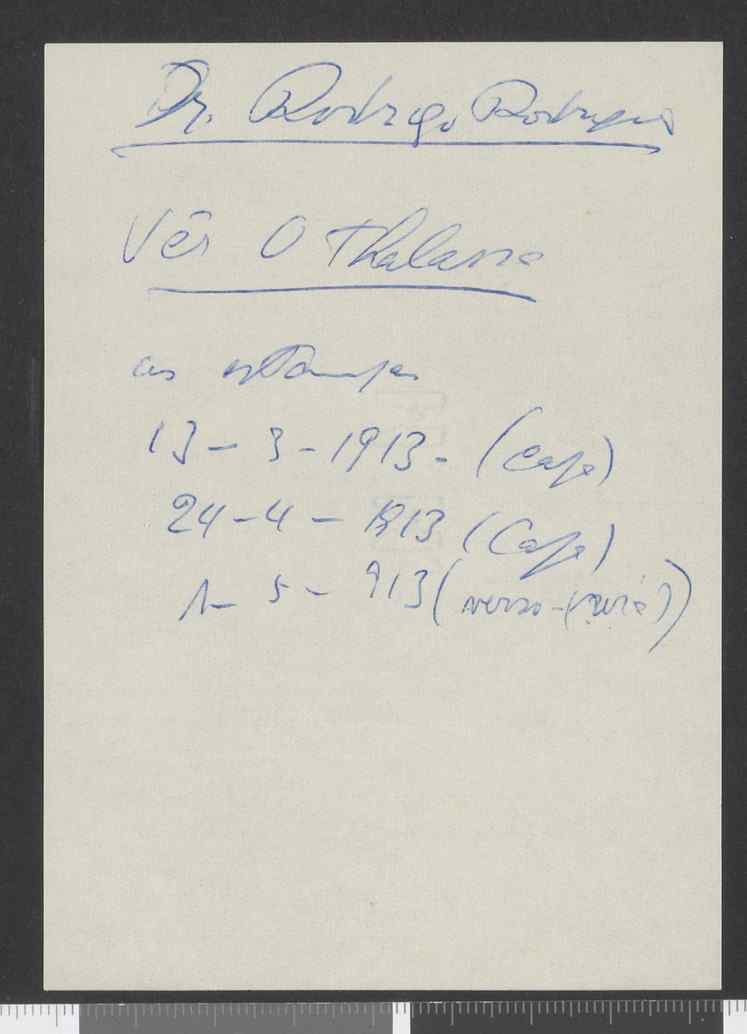 Dr. Rodrigo Rodrigues
Vêr O Thalassa
as estampas
13 - 3 - 1913 - (Capa)
24 - 4 - 1913 (Capa)
1 - 5 - 913 (verso